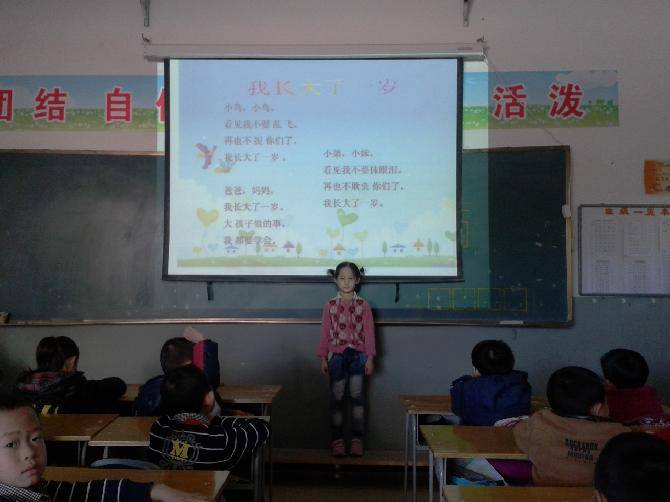 我长大了一岁
团结 自
活泼
小鸟，小鸟，
看见我不要乱飞，
再也不捉你们了，
我长大了一岁。
爸爸，妈妈，
我长大了一岁。
大孩子做的事，
我都要学会。
小弟，小妹，
看见我不要抹眼泪。
再也不欺负你们了，
我长大了一岁。
M